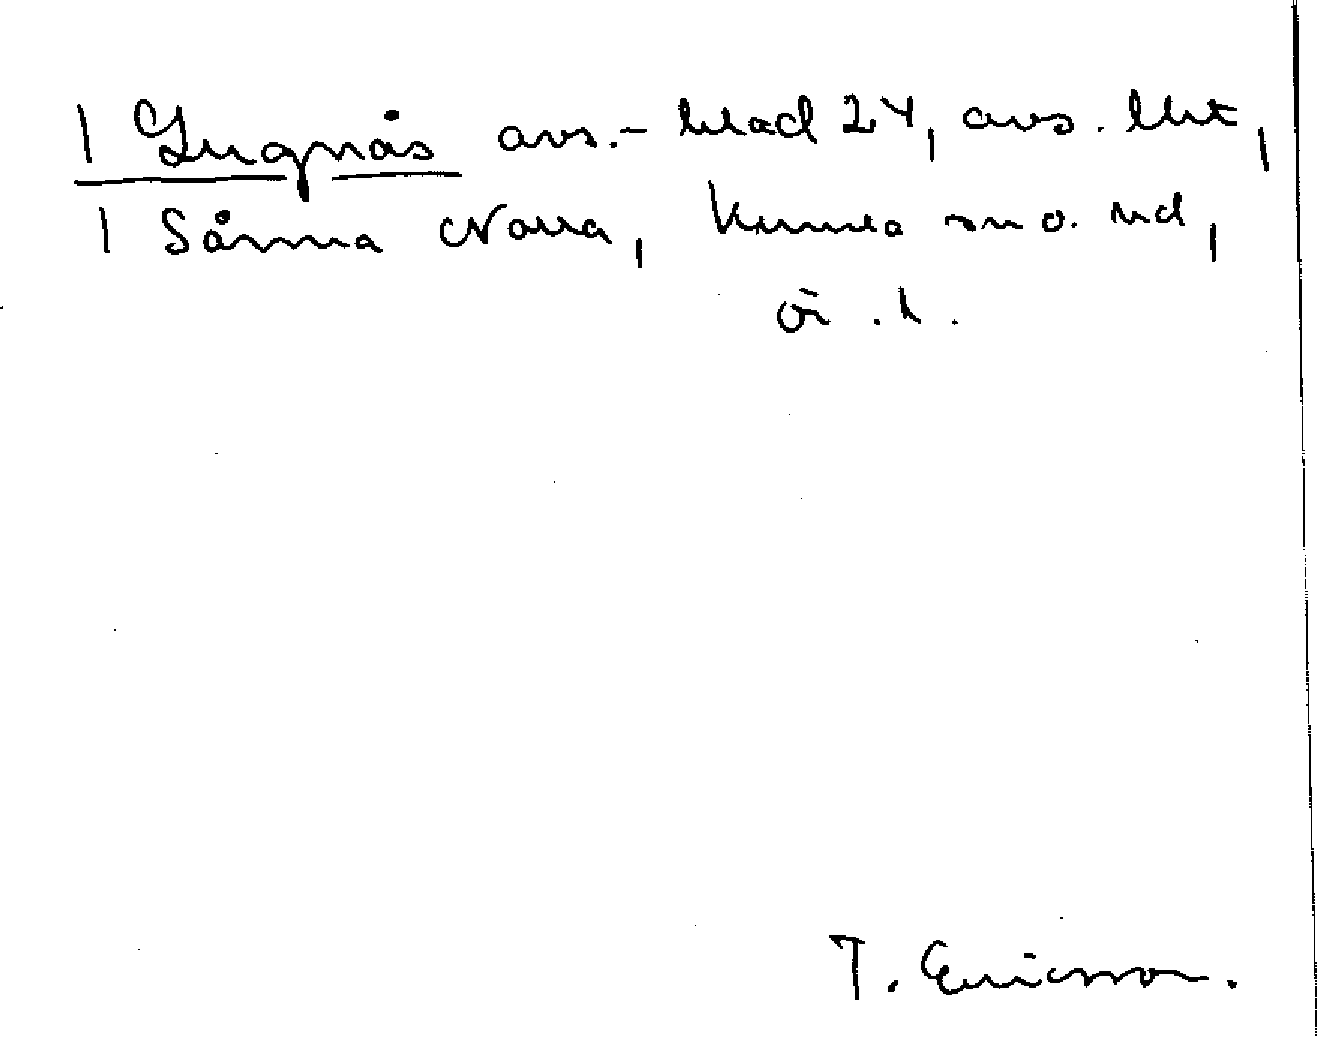 | Lugnås avs.- blad 24, avs. lht,
| Sånna Norra, Kumla sn o. hd,
Ör. l.
T. Ericsson.